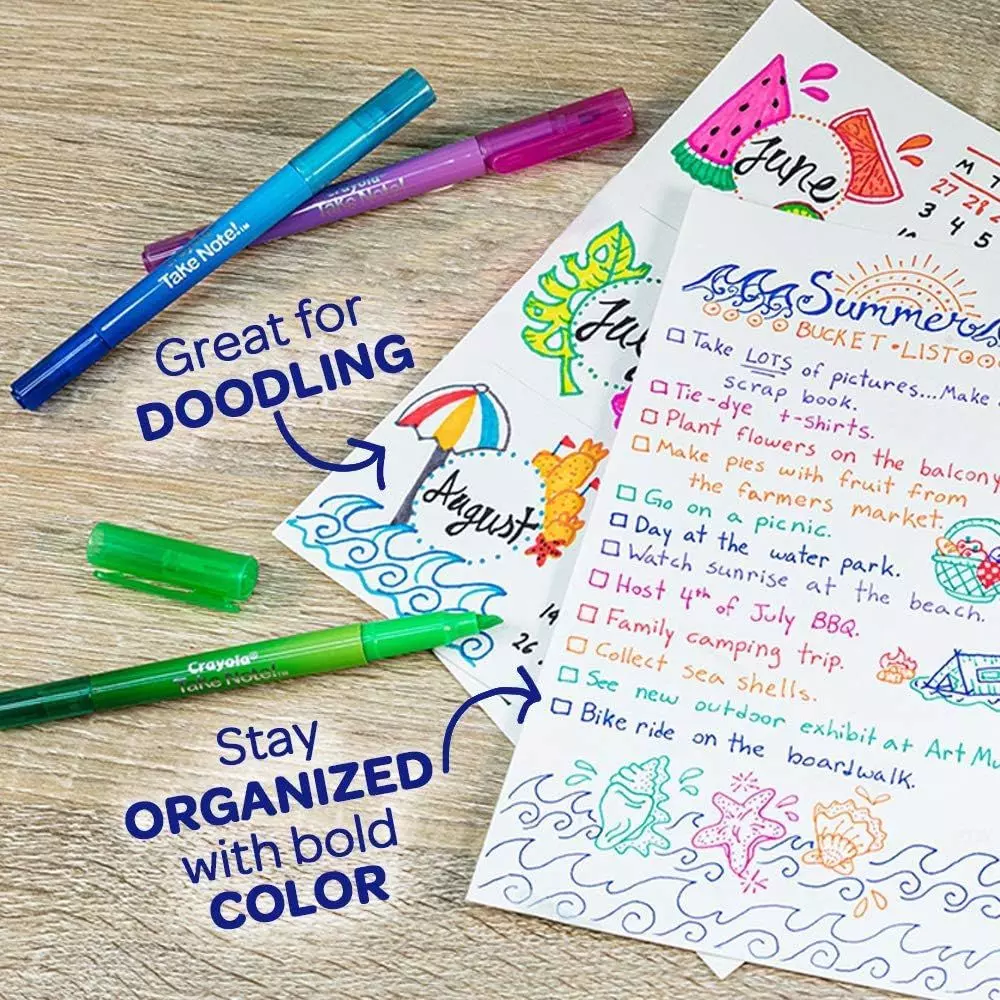 Take Note!™
Crayola
Take Note!
Great for
DOODLING
June
M T
27 28
3 4 5
August
14
26
Crayola®
Take Note!™
Stay
ORGANIZED
with bold
COLOR
Summer
BUCKET • LIST
Take LOTS of pictures...Make
scrap book.
Tie-dye t-shirts.
Plant flowers on the balcony
Make pies with fruit from
the farmers market.
Go on a picnic.
Day at the water park.
Watch sunrise at the beach.
Host 4th of July BBQ.
Family camping trip.
Collect sea shells.
See new outdoor exhibit at Art
Bike ride on the boardwalk.